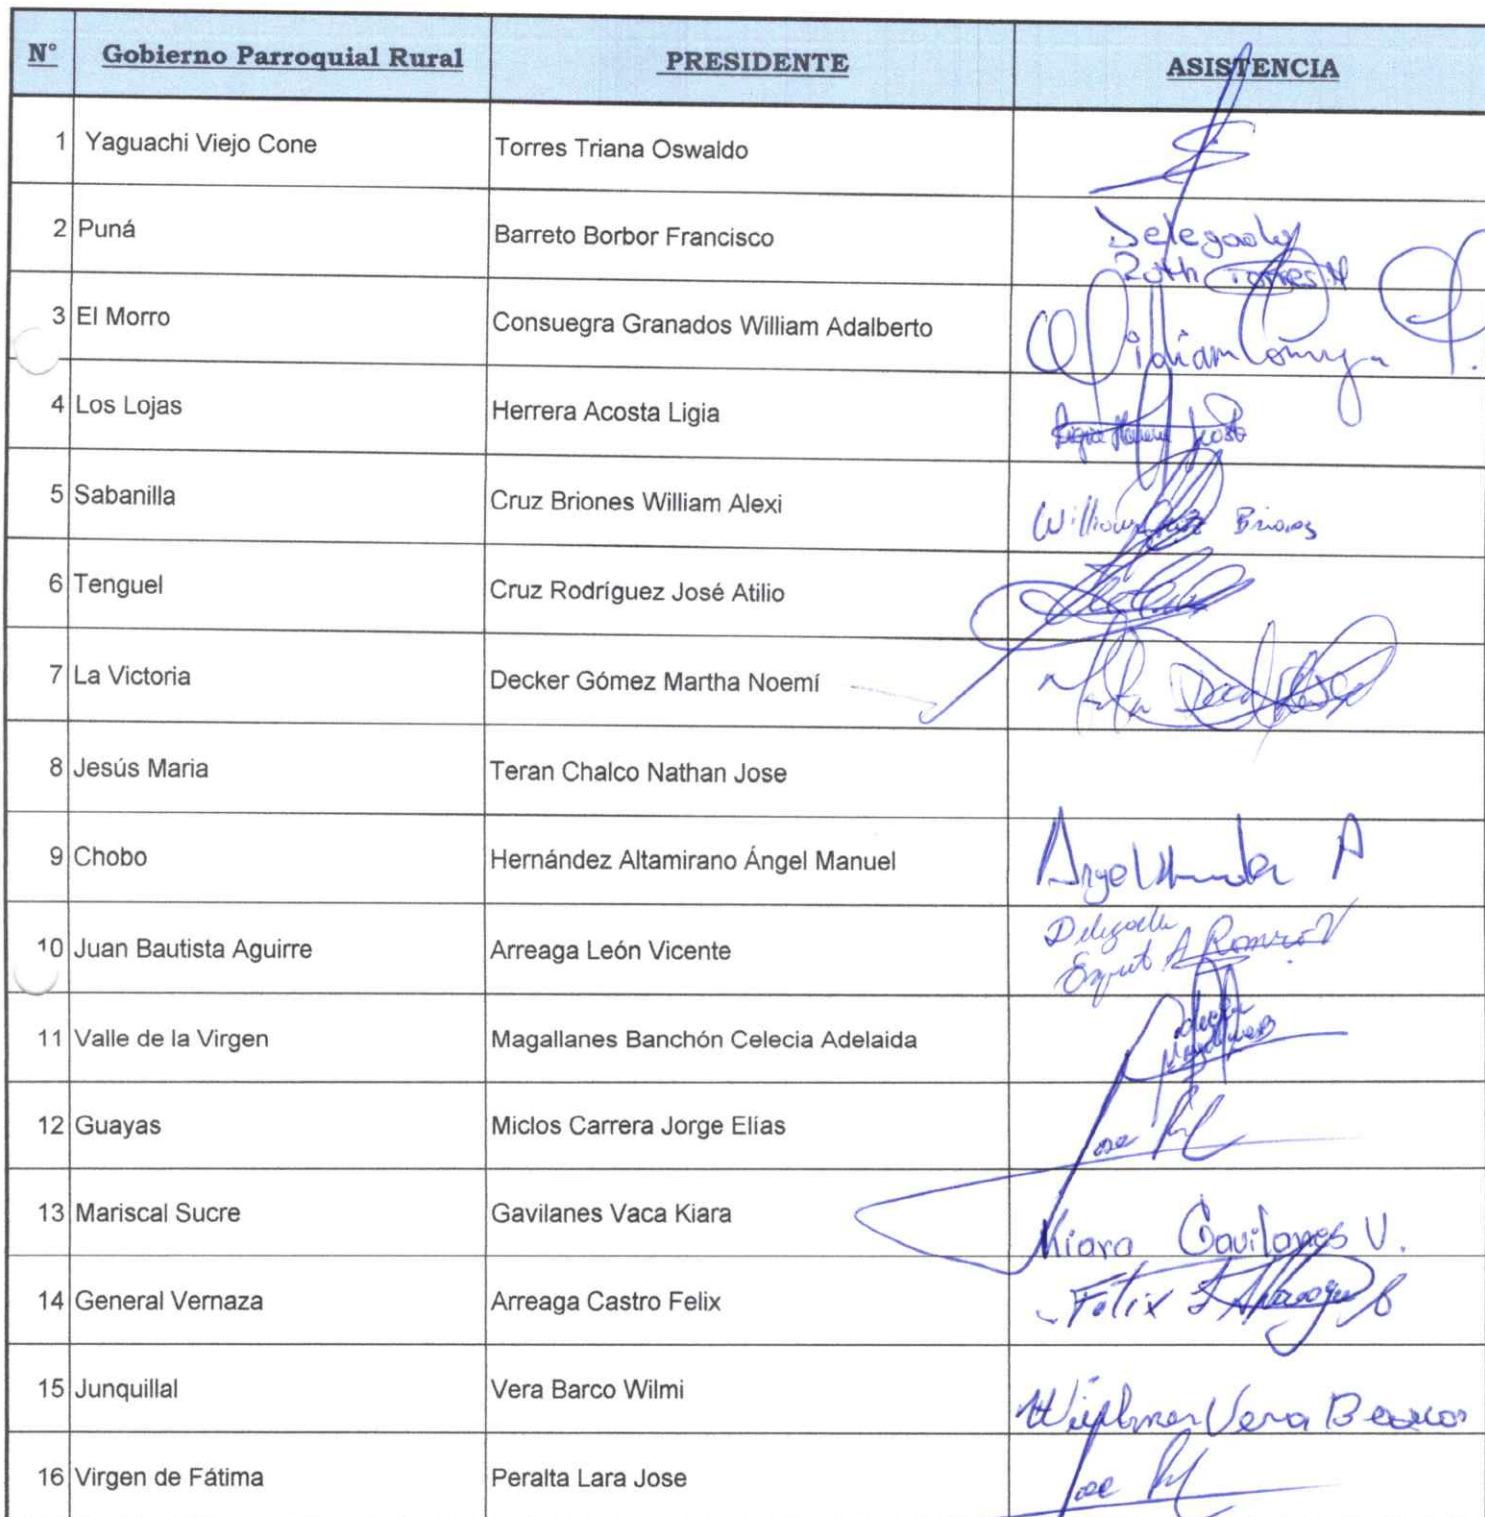 N° Gobierno Parroquial Rural PRESIDENTE ASISTENCIA
1 Yaguachi Viejo Cone Torres Triana Oswaldo
2 Puná Barreto Borbor Francisco Delegado
Torres N
3 El Morro Consuegra Granados William Adalberto
4 Los Lojas Herrera Acosta Ligia Ligia Herrera
5 Sabanilla Cruz Briones William Alexi William Cruz Briones
6 Tenguel Cruz Rodríguez José Atilio
7 La Victoria Decker Gómez Martha Noemí
8 Jesús Maria Teran Chalco Nathan Jose
9 Chobo Hernández Altamirano Ángel Manuel Angel A
10 Juan Bautista Aguirre Arreaga León Vicente
11 Valle de la Virgen Magallanes Banchón Celecia Adelaida
12 Guayas Miclos Carrera Jorge Elías Jose
13 Mariscal Sucre Gavilanes Vaca Kiara Kiara Gavilanes V.
14 General Vernaza Arreaga Castro Felix Felix
15 Junquillal Vera Barco Wilmi Vera
16 Virgen de Fátima Peralta Lara Jose Jose